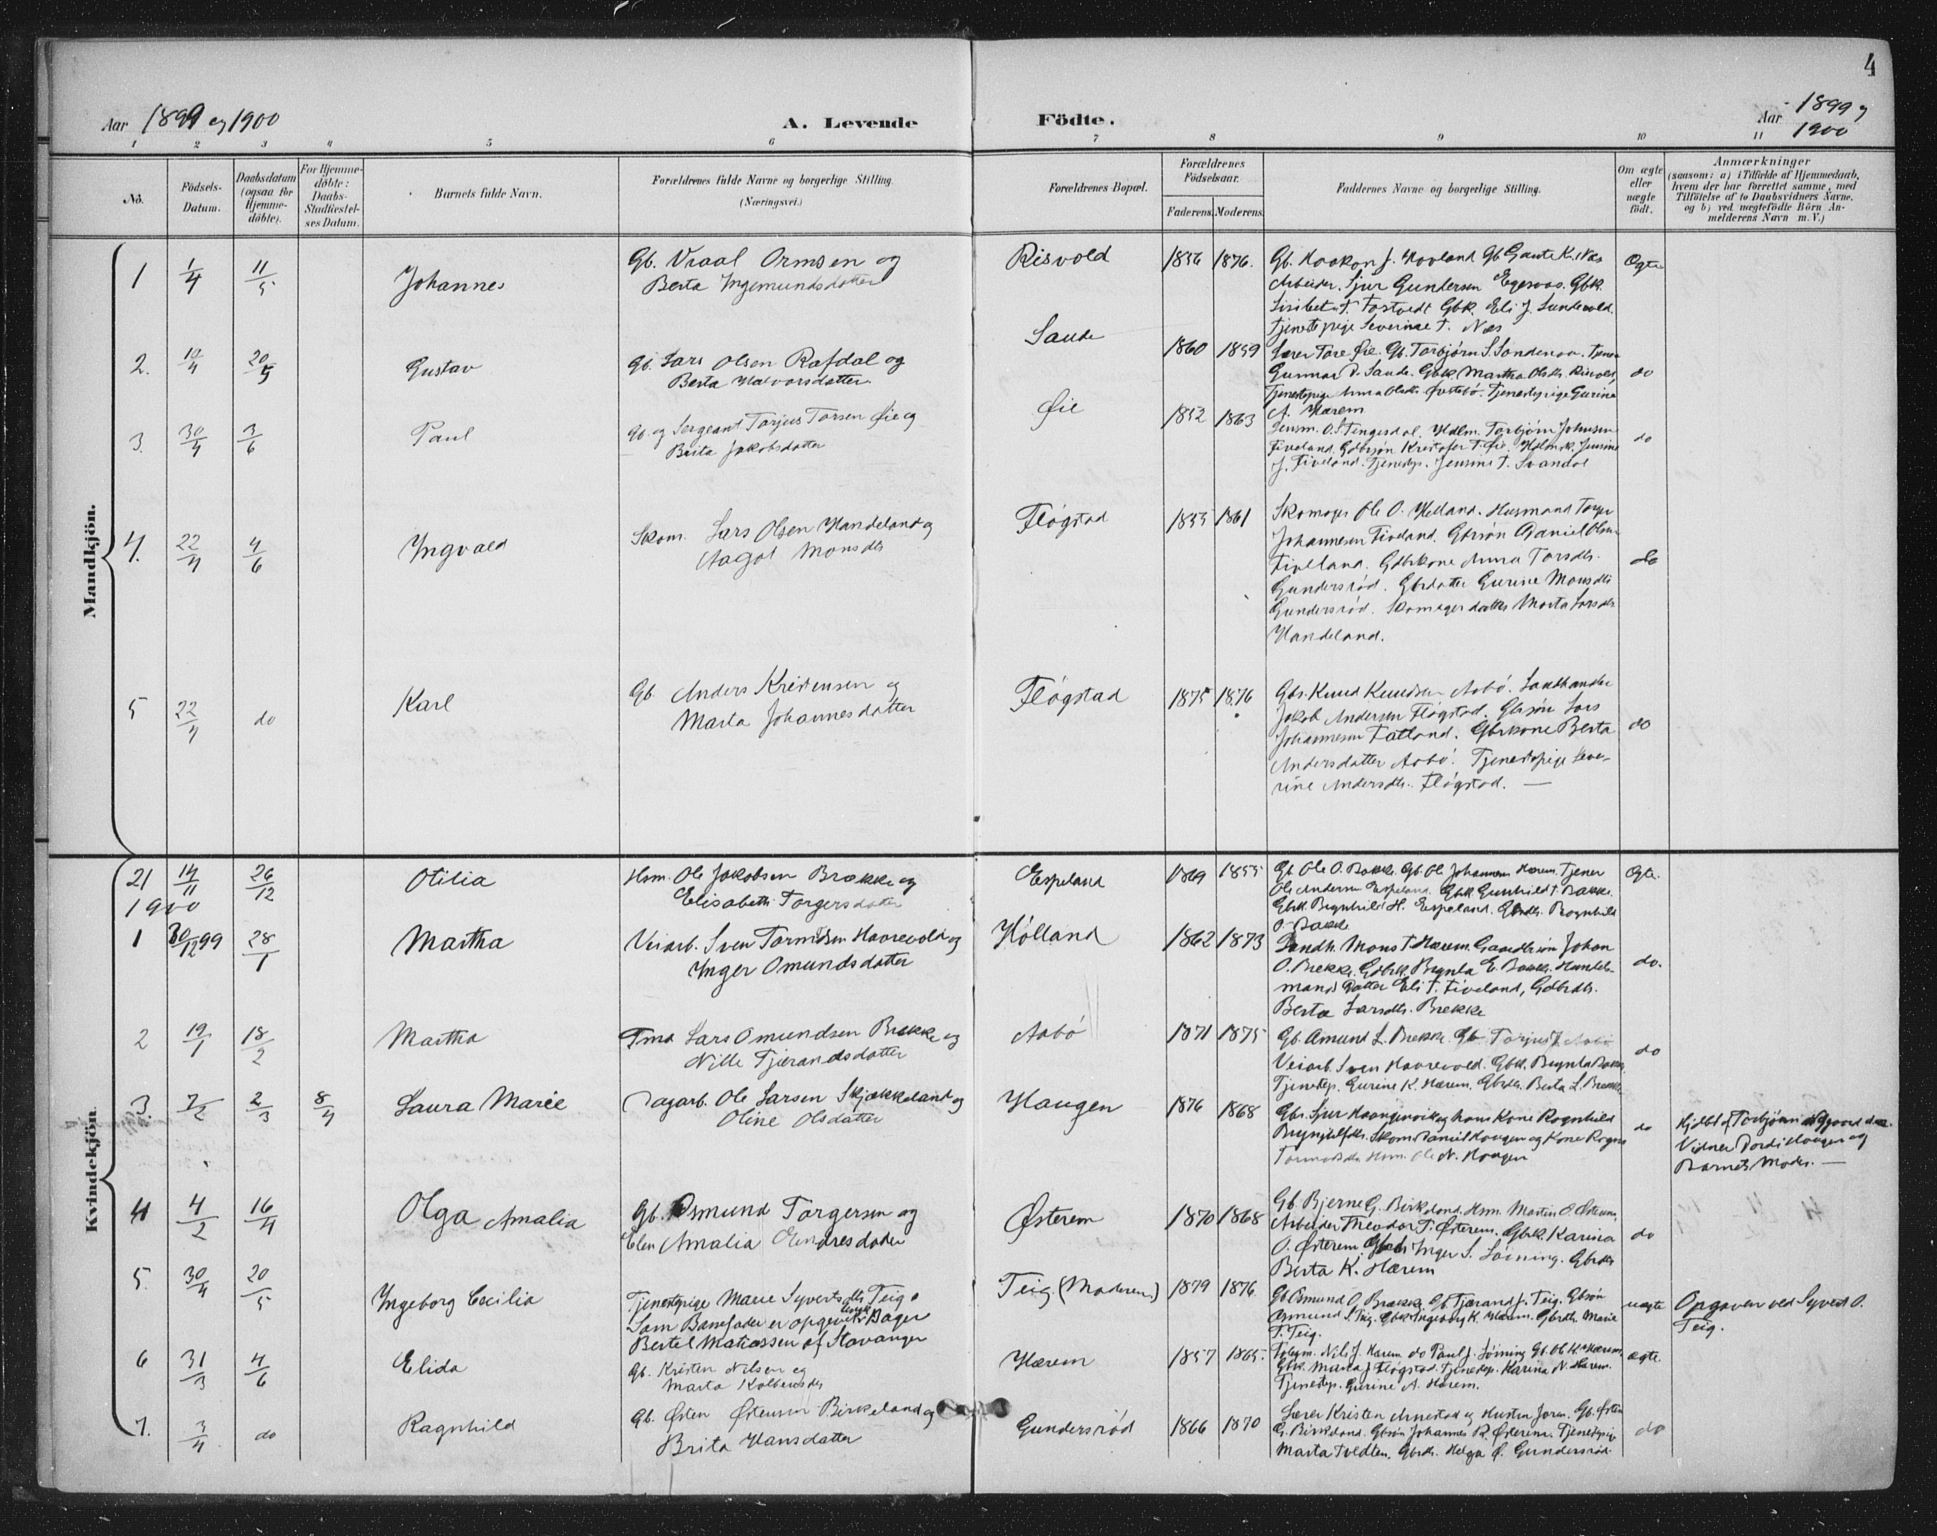 4
Aar 1899 og 1900
A. Levende Födte.
Aar 1899 og 1900
1 2 3 4 5 6 7 8 9 10 11
No.
Födsels-Datum.
Daabsdatum (ogsaa for Hjemme-döbte).
For Hjemme-döbte: Daabs-Stadfæstel-ses Datum.
Barnets fulde Navn.
Forældrenes fulde Navne og borgerlige Stilling. (Næringsvei.)
Forældrenes Bopæl.
Forældrenes Födselsaar.
Faderens. Moderens.
Faddernes Navne og borgerlige Stilling.
Om ægte eller uægte födt.
Anmærkninger
(saasom: a) i Tilfælde af Hjemmedaab, hvem der har forrettet samme, med Tilföielse af to Daabsvidners Navne, og b) ved uægtefödte Börn An-melderens Navn m. V.)
Mandkjön.
1 1/4 11/5 Johannes
Gb. Vraal Ormsen og
Berta Ingemundsdatter
Risvold 1856 1876.
Gb. Haakon J. Hovland Gb Gaute K. Næs
Arbeider. Sjur Gundersen Gbk.
Lisibet T. Tostvedt Gbk. Eli J. Sandevold.
Tjenestepige Severine T. Næs
Ægte
2. 19/4 20/5 Gustav
Gb. Lars Olsen Rafdal og
Berta Halvorsdatter
Saude 1860 1859
Lærer Tore Øie. Gb. Torbjørn S. Tjener
Gunnar D. Saude. Gbk. Martha Olsdtr. Risvold,
Tjenestepige Anna Olsdtr. Tjenestepige Gurine
A. Hærem
do
3. 30/4 3/6 Paul
Gb. og Sergeant Torjus Torsen Øie og
Berta Jakobsdatter
Øie 1852 1863
Lensm. O. S. Tengesdal. Torbjørn Johnsen
Tiveland. Gbrsøn Kristofer T. Øie. Jensine
J. Tiveland. Tjenestep. Jensine T. Svandal
do
4. 22/4 4/6 Ingvald
Skom. Lars Olsen Handeland og
Aagot Monsdtr
Fløgstad 1855 1861
Skomager Ole O. Helland. Husmand Torger
Johannesen Tiveland. Gbrsøn Daniel Olsen
Tiveland. Gdbrkone Anna Torsdtr.
Gundersrød. Gbrdatter Gurine Monsdtr
Gundersrød. Skomagerdatter Marta Larsdtr
Handeland.
do
5 22/4 do Karl
Gb. Anders Kristensen og
Marta Johannesdatter
Fløgstad 1875 1876
Gbr. Knud Knudsen Aabø. Landhandler
Jakob Andersen Fløgstad. Gbrsøn Lars
Johannesen Tatland. Gbrkone Berta
Andersdatter Aabø. Tjenestepige Seve-
rine Andersdtr. Fløgstad. —
do
Kvindekjön.
21 14/11 26/12 Otilia
Hsm. Ole Jakobsen Brække og
Elisabeth Torgersdatter
Espeland 1869 1855
Gb. Ole O. Bakke. Gb. Ole Johannesen Hærem. Tjener
Ole Andersen Espeland. Gbk. Gunhild T. Bakke.
Gbk. Brynhild H. Espeland. Gbrdtr. Ragnhild
O. Bakke
Ægte.
1900
1 30/12 99 28/1 Martha
Veiarb. Sven Tormodsen Haavevold og
Inger Omundsdatter
Hølland 1862 1873
Landh. Mons T. Hærem. Johan
O. Brekke. Gdbrk. Brynla E. Bakke. Handels-
mands Datter Eli T. Tiveland, Gdbrdtr.
Berta Larsdtr. Brekke
do.
2 19/1 18/2 Martha
Lars Omundsen Brekke og
Nille Tjærandsdatter
Aabø 1871 1875
Gb. Amund L. Brekke. Gb. Torjus J. Aabø
Veiarb. Sven Haavevold. Gbk. Brynla Bakke
Tjenestep. Gurine K. Hærem. Gbrdtr. Berta L. Brekke
do
3. 7/2 2/3 8/4 Laura Marie
Dagarb. Ole Larsen Skjækkeland og
Oline Olsdatter
Haugen 1876 1868
Gbr. Sjur og hans Kone Ragnhild
Brynjulfsdtr. Skom. Daniel Haugen og Kone Ragna
Tormodsdtr Hsm. Ole N. Haugen
do
Hjdbt af Torbjørn
Vidner Haugen og
Barnets Moder. —
4 4/2 16/4 Olga Amalia
Gb. Osmund Torgersen og
Elen Amalia Endresdatter
Østerem 1870 1868
Gb. Bjerne G. Birkeland, Hsm. Martin O. Østerem,
Arbeider Theodor T. Østerem. Gbrk. Karina
O. Østerem Gbrdtr Inger S. Løining. Gbrdtr
Berta K. Hærem
do
5. 30/4 20/5 Ingeborg Cecilia
Tjenestepige Marie Syvertsdtr Teig.
Som Barnefader er opgivet Ungk. Bager
Bertel Matiassen af Stavanger
Teig (Moderen) 1879 1876
Gb. Osmund O. Brække. Gb. Tjærand J. Teig. Gbsøn
Osmund S. Teig. Gbk. Ingeborg K. Hærem. Gbrdtr. Marie
T. Teig.
uægte
Opgaven ved Syvert O.
Teig.
6 31/3 4/6 Elida
Gb. Kristen Nilsen og
Marta Kolbensdtr
Hærem 1857 1865.
Nils J. Hærem do Paul J. Løining Gb. Ole K. Hærem,
Gbk. Marta J. Fløgstad. Tjenestep. Karina N. Hærem.
Tjenestep. Gurine A. Hærem.
ægte
7. 3/4 do Ragnhild
Gb. Østen Østensen Birkeland og
Brita Hansdatter
Gundersrød 1866 1870
Lærer Kristen Amestad og Hustru Joren. Gb. Østen
G. Birkeland. Gbsøn Johannes R. Østerem. Tjenestepige
Marta Tveldten. Gbrdtr. Helga Ø. Gundersrød.
do